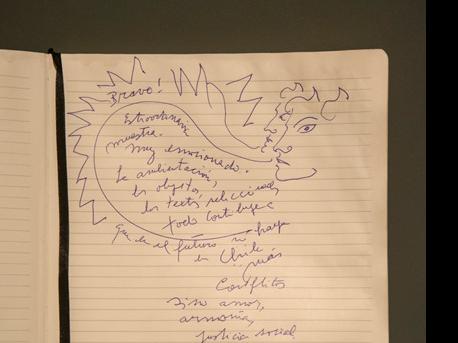 Bravo!
Extraordinaria
muestra.
muy emocionado.
La ambientación,
los objetos,
los textos seleccionados
todo contribuye a
que en el futuro no haya
en Chile más
Conflictos
sino amor,
armonía,
justicia social